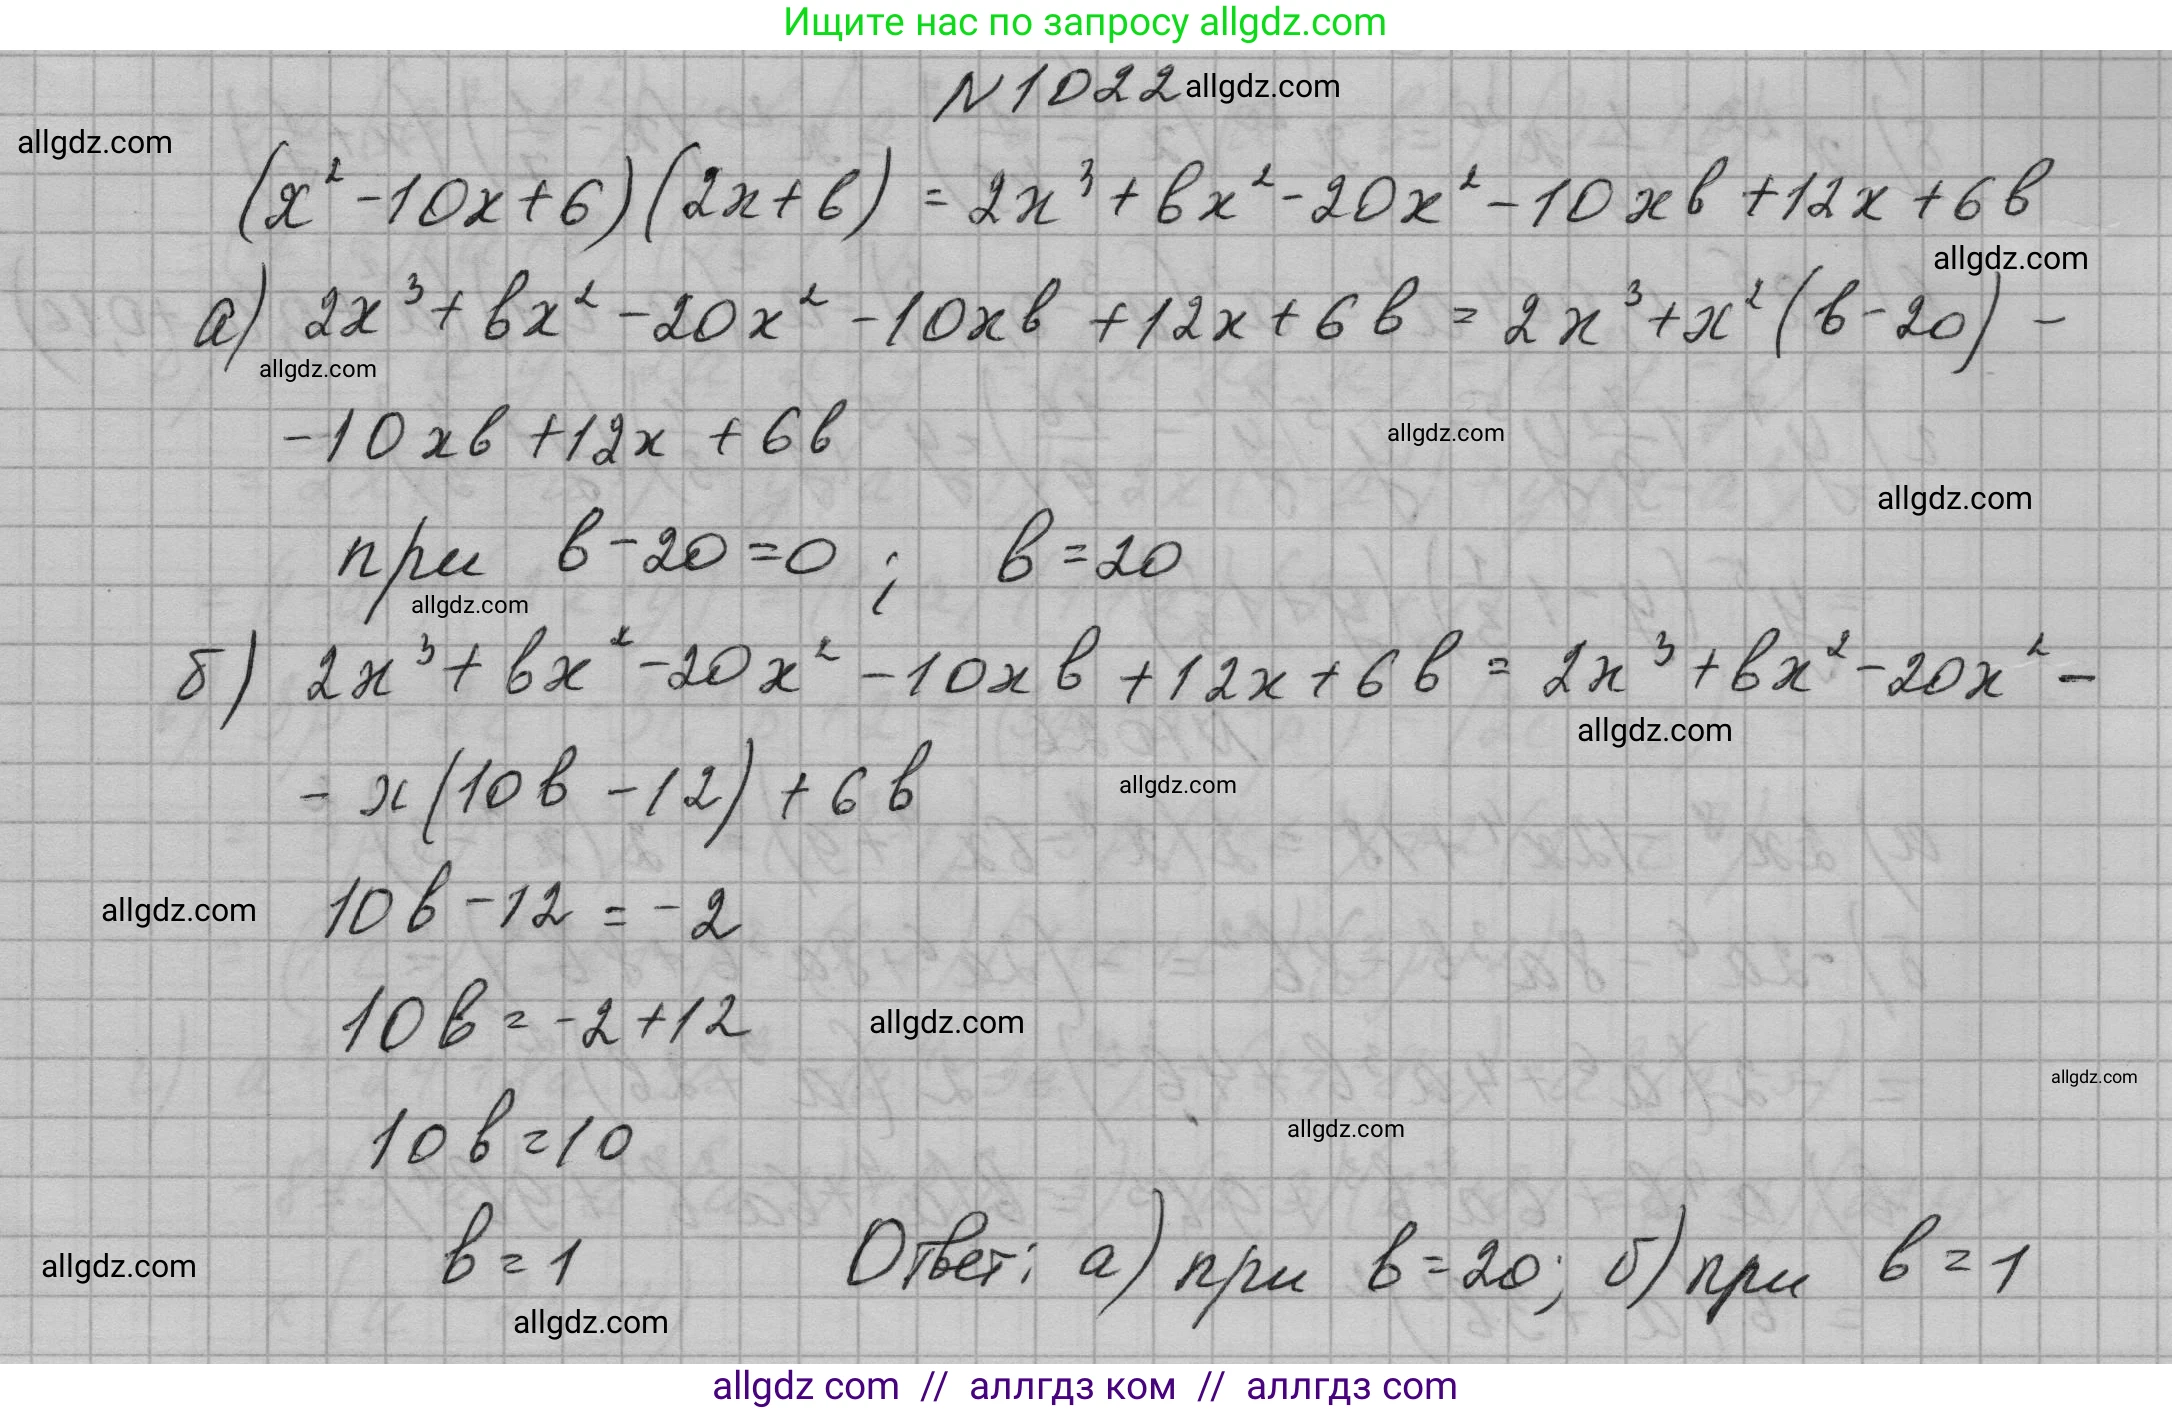 Ищите нас по запросу allgdz.com
N1022 allgdz.com
allgdz.com
(x² -10x+6)(2x+b) = 2x³ + bx² - 20x² - 10xb + 12x + 6b
allgdz.com
а) 2x³ + bx² - 20x² - 10xb + 12x + 6b = 2x³ + x²(b - 20) -
allgdz.com
- 10xb + 12x + 6b
allgdz.com
allgdz.com
при b - 20 = 0 ; b = 20
allgdz.com
б) 2x³ + bx² - 20x² - 10xb + 12x + 6b = 2x³ + bx² - 20x² -
allgdz.com
- x(10b - 12) + 6b
allgdz.com
allgdz.com
10b - 12 = -2
10b = -2 + 12
allgdz.com
allgdz.com
10b = 10
allgdz.com
b = 1 Ответ: а) при b = 20; б) при b = 1
allgdz.com
allgdz.com
allgdz com // аллгдз ком // аллгдз com